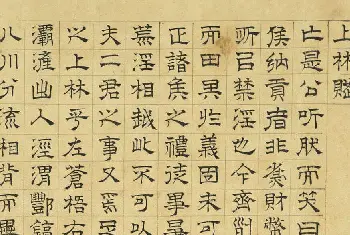 上林賦
亡是公听肰而笑曰
矦納貢者非為財幣
所㠯禁淫也今齊
而田其於義固未可
正諸矦之禮徒事
荒淫相越此不可以
夫二君之事又焉
之上林乎左蒼梧右
灞滻出入涇渭酆鎬
八川分流相背而異